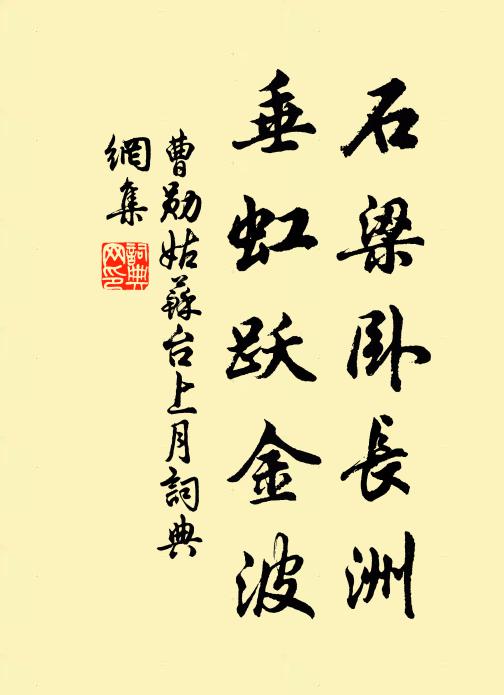 石梁卧長洲
垂虹跃金波
曹勋姑蘇台上月詞典
網集
詞典網印